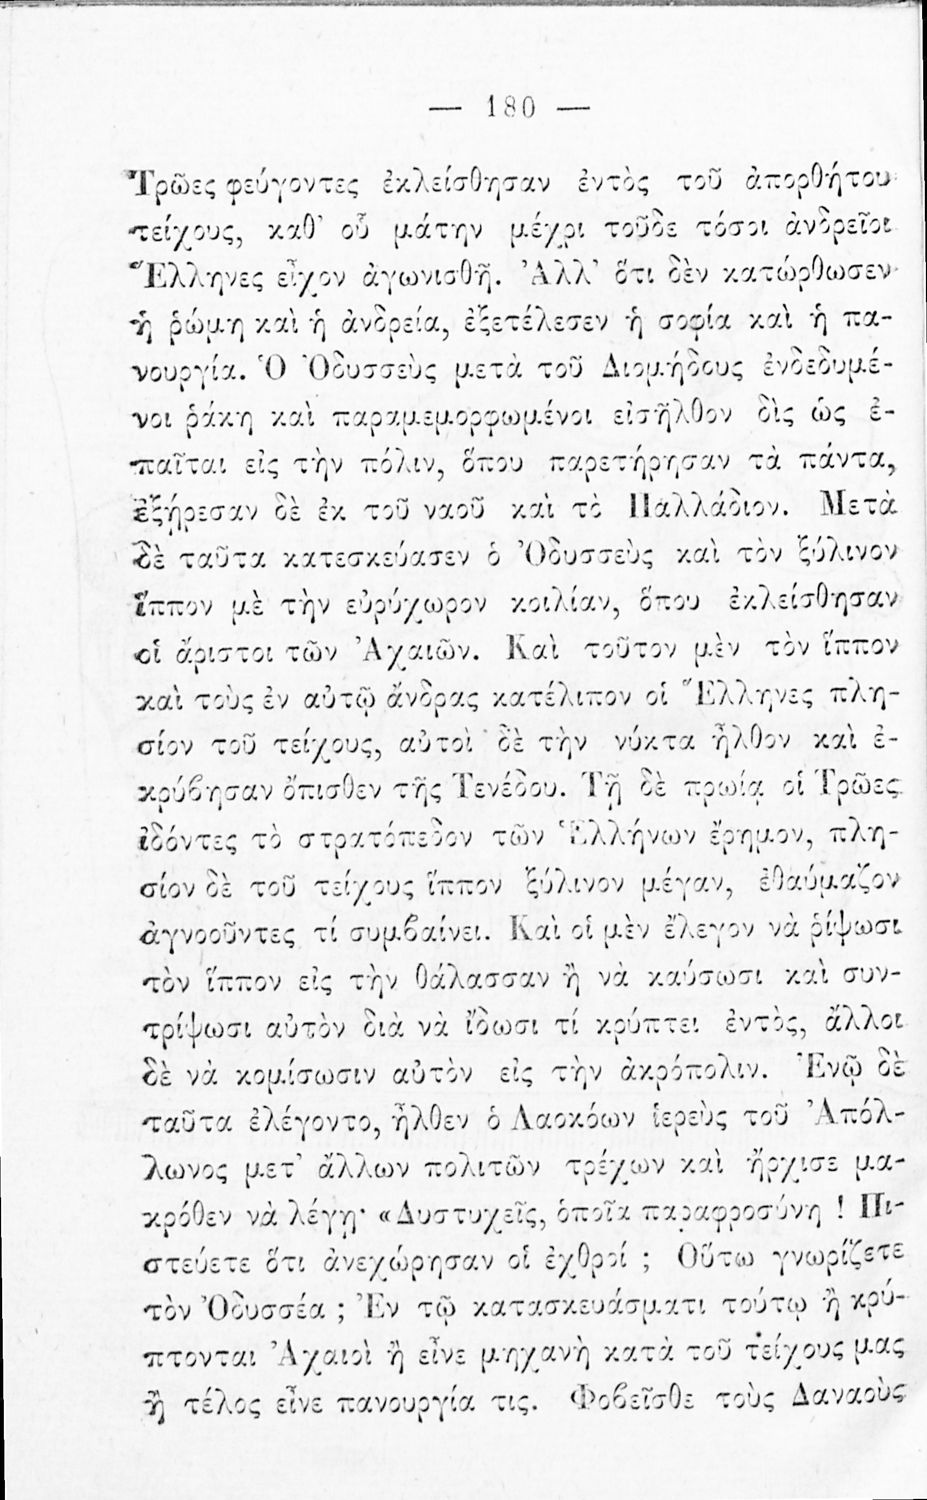 — 180 —
Τρῶες φεύγοντες ἐκλείσθησαν ἐντὸς τοῦ ἀπορθήτου
τείχους, καθ’ οὗ μάτην μέχρι τοῦδε τόσοι ἀνδρεῖοι
Ἕλληνες εἶχον ἀγωνισθῆ. Ἀλλ’ ὅτι δὲν κατώρθωσεν
ἡ ῥώμη καὶ ἡ ἀνδρεία, ἐξετέλεσεν ἡ σοφία καὶ ἡ πα-
νουργία. Ὁ Ὀδυσσεὺς μετὰ τοῦ Διομήδους ἐνδεδυμέ-
νοι ῥάκη καὶ παραμεμορφωμένοι εἰσῆλθον δὶς ὡς ἐ-
παῖται εἰς τὴν πόλιν, ὅπου παρετήρησαν τὰ πάντα,
ἐξήρεσαν δὲ ἐκ τοῦ ναοῦ καὶ τὸ Παλλάδιον. Μετὰ
δὲ ταῦτα κατεσκεύασεν ὁ Ὀδυσσεὺς καὶ τὸν ξύλινον
ἵππον μὲ τὴν εὐρύχωρον κοιλίαν, ὅπου ἐκλείσθησαν
οἱ ἄριστοι τῶν Ἀχαιῶν. Καὶ τοῦτον μὲν τὸν ἵππον
καὶ τοὺς ἐν αὐτῷ ἄνδρας κατέλιπον οἱ Ἕλληνες πλη-
σίον τοῦ τείχους, αὐτοὶ δὲ τὴν νύκτα ἦλθον καὶ ἐ-
κρύβησαν ὄπισθεν τῆς Τενέδου. Τῇ δὲ πρωίᾳ οἱ Τρῶες
ἰδόντες τὸ στρατόπεδον τῶν Ἑλλήνων ἔρημον, πλη-
σίον δὲ τοῦ τείχους ἵππον ξύλινον μέγαν, ἐθαύμαζον
ἀγνοοῦντες τί συμβαίνει. Καὶ οἱ μὲν ἔλεγον νὰ ῥίψωσι
τὸν ἵππον εἰς τὴν θάλασσαν ἢ νὰ καύσωσι καὶ συν-
τρίψωσι αὐτὸν διὰ νὰ ἴδωσι τί κρύπτει ἐντὸς, ἄλλοι
δὲ νὰ κομίσωσιν αὐτὸν εἰς τὴν ἀκρόπολιν. Ἐνῷ δὲ
ταῦτα ἐλέγοντο, ἦλθεν ὁ Λαοκόων ἱερεὺς τοῦ Ἀπόλ-
λωνος μετ’ ἄλλων πολιτῶν τρέχων καὶ ἤρχισε μα-
κρόθεν νὰ λέγῃ· «Δυστυχεῖς, ὁποῖα παραφροσύνη ! Πι-
στεύετε ὅτι ἀνεχώρησαν οἱ ἐχθροί ; Οὕτω γνωρίζετε
τὸν Ὀδυσσέα ; Ἐν τῷ κατασκευάσματι τούτῳ ἢ κρύ-
πτονται Ἀχαιοὶ ἢ εἶνε μηχανὴ κατὰ τοῦ τείχους μας
ἢ τέλος εἶνε πανουργία τις. Φοβεῖσθε τοὺς Δαναοὺς